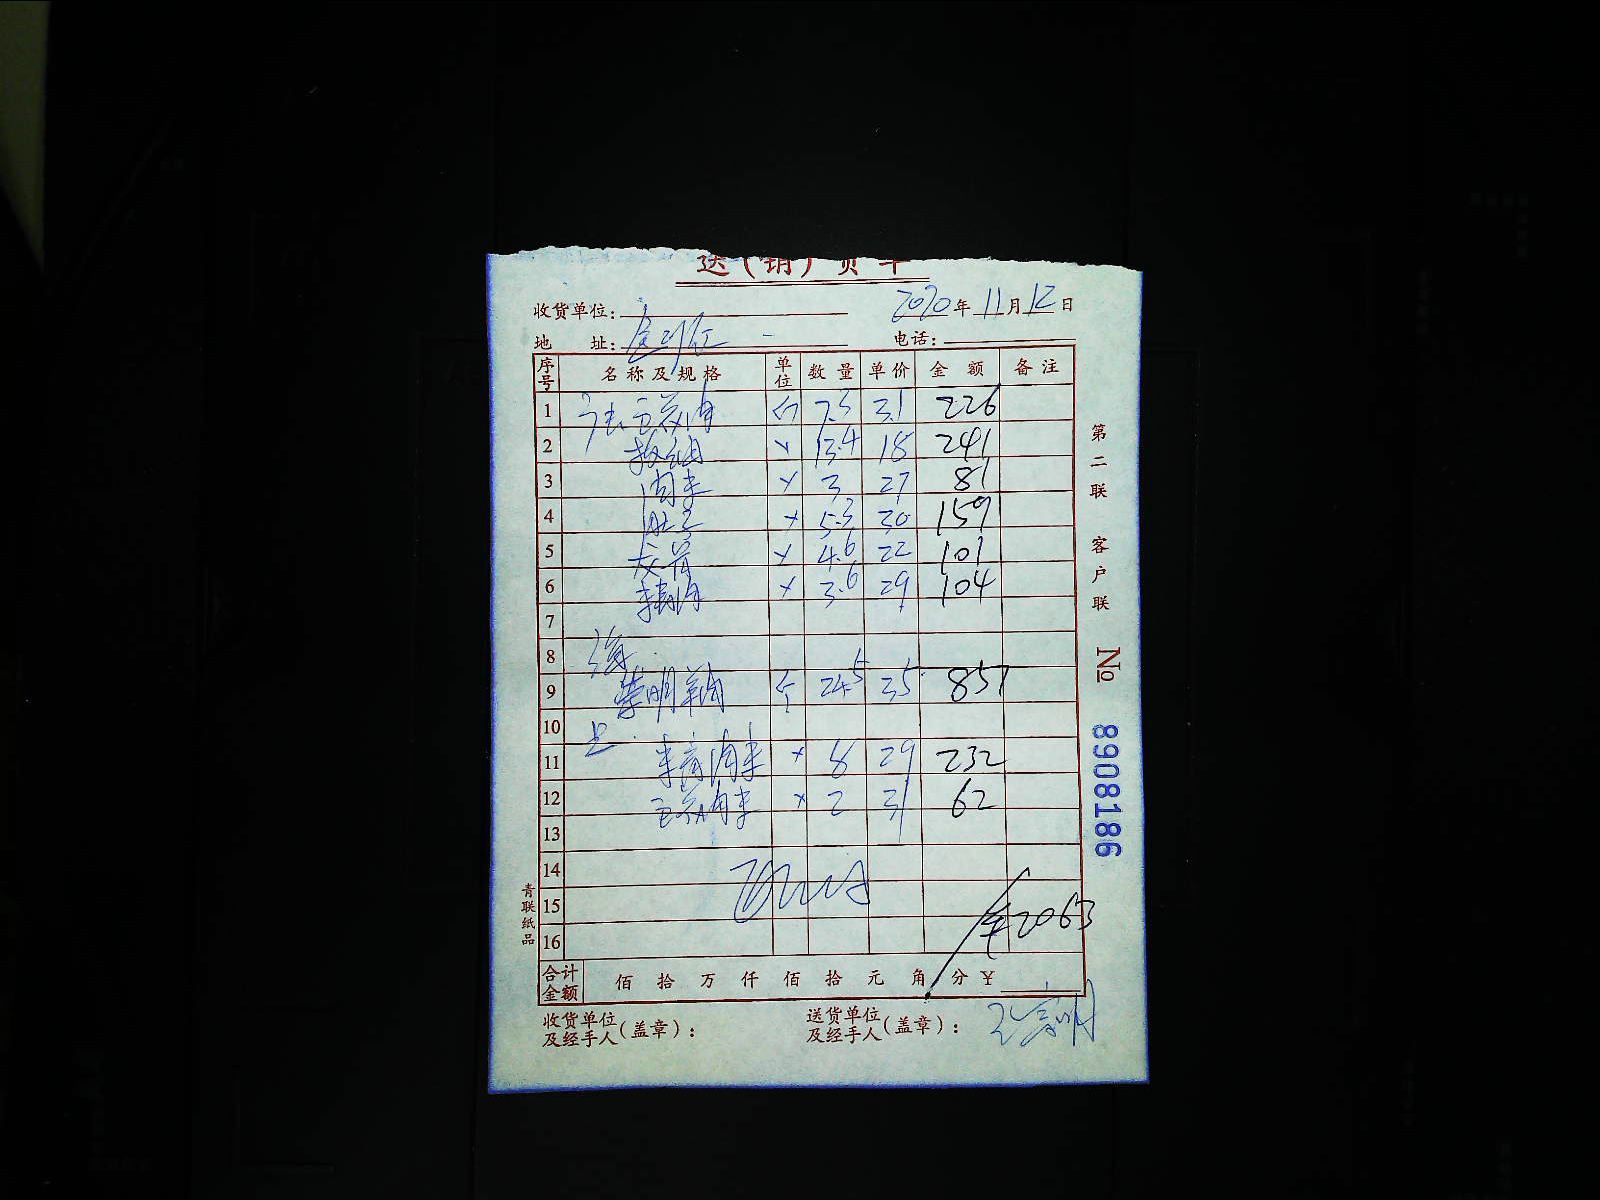 送(销)货单
收货单位: 2020年11月12日
地 址: 电话:
序号 名称及规格 单位 数量 单价 金额 备注
1 斤 7.3 31 226
2 〃 13.4 18 241
3 肉末 〃 3 27 81
4 〃 5.3 30 159
5 龙骨 〃 4.6 22 101
6 精肉 〃 3.6 29 104
7
8
9 崇明羊肉 斤 24.5 35 857
10
11 肉末 〃 8 29 232
12 肉末 〃 2 31 62
13
14
15 ¥2063
16
合计金额 佰 拾 万 仟 佰 拾 元 角 分 ¥
收货单位及经手人(盖章): 送货单位及经手人(盖章):
第二联 客户联
№ 8908186
青联纸品